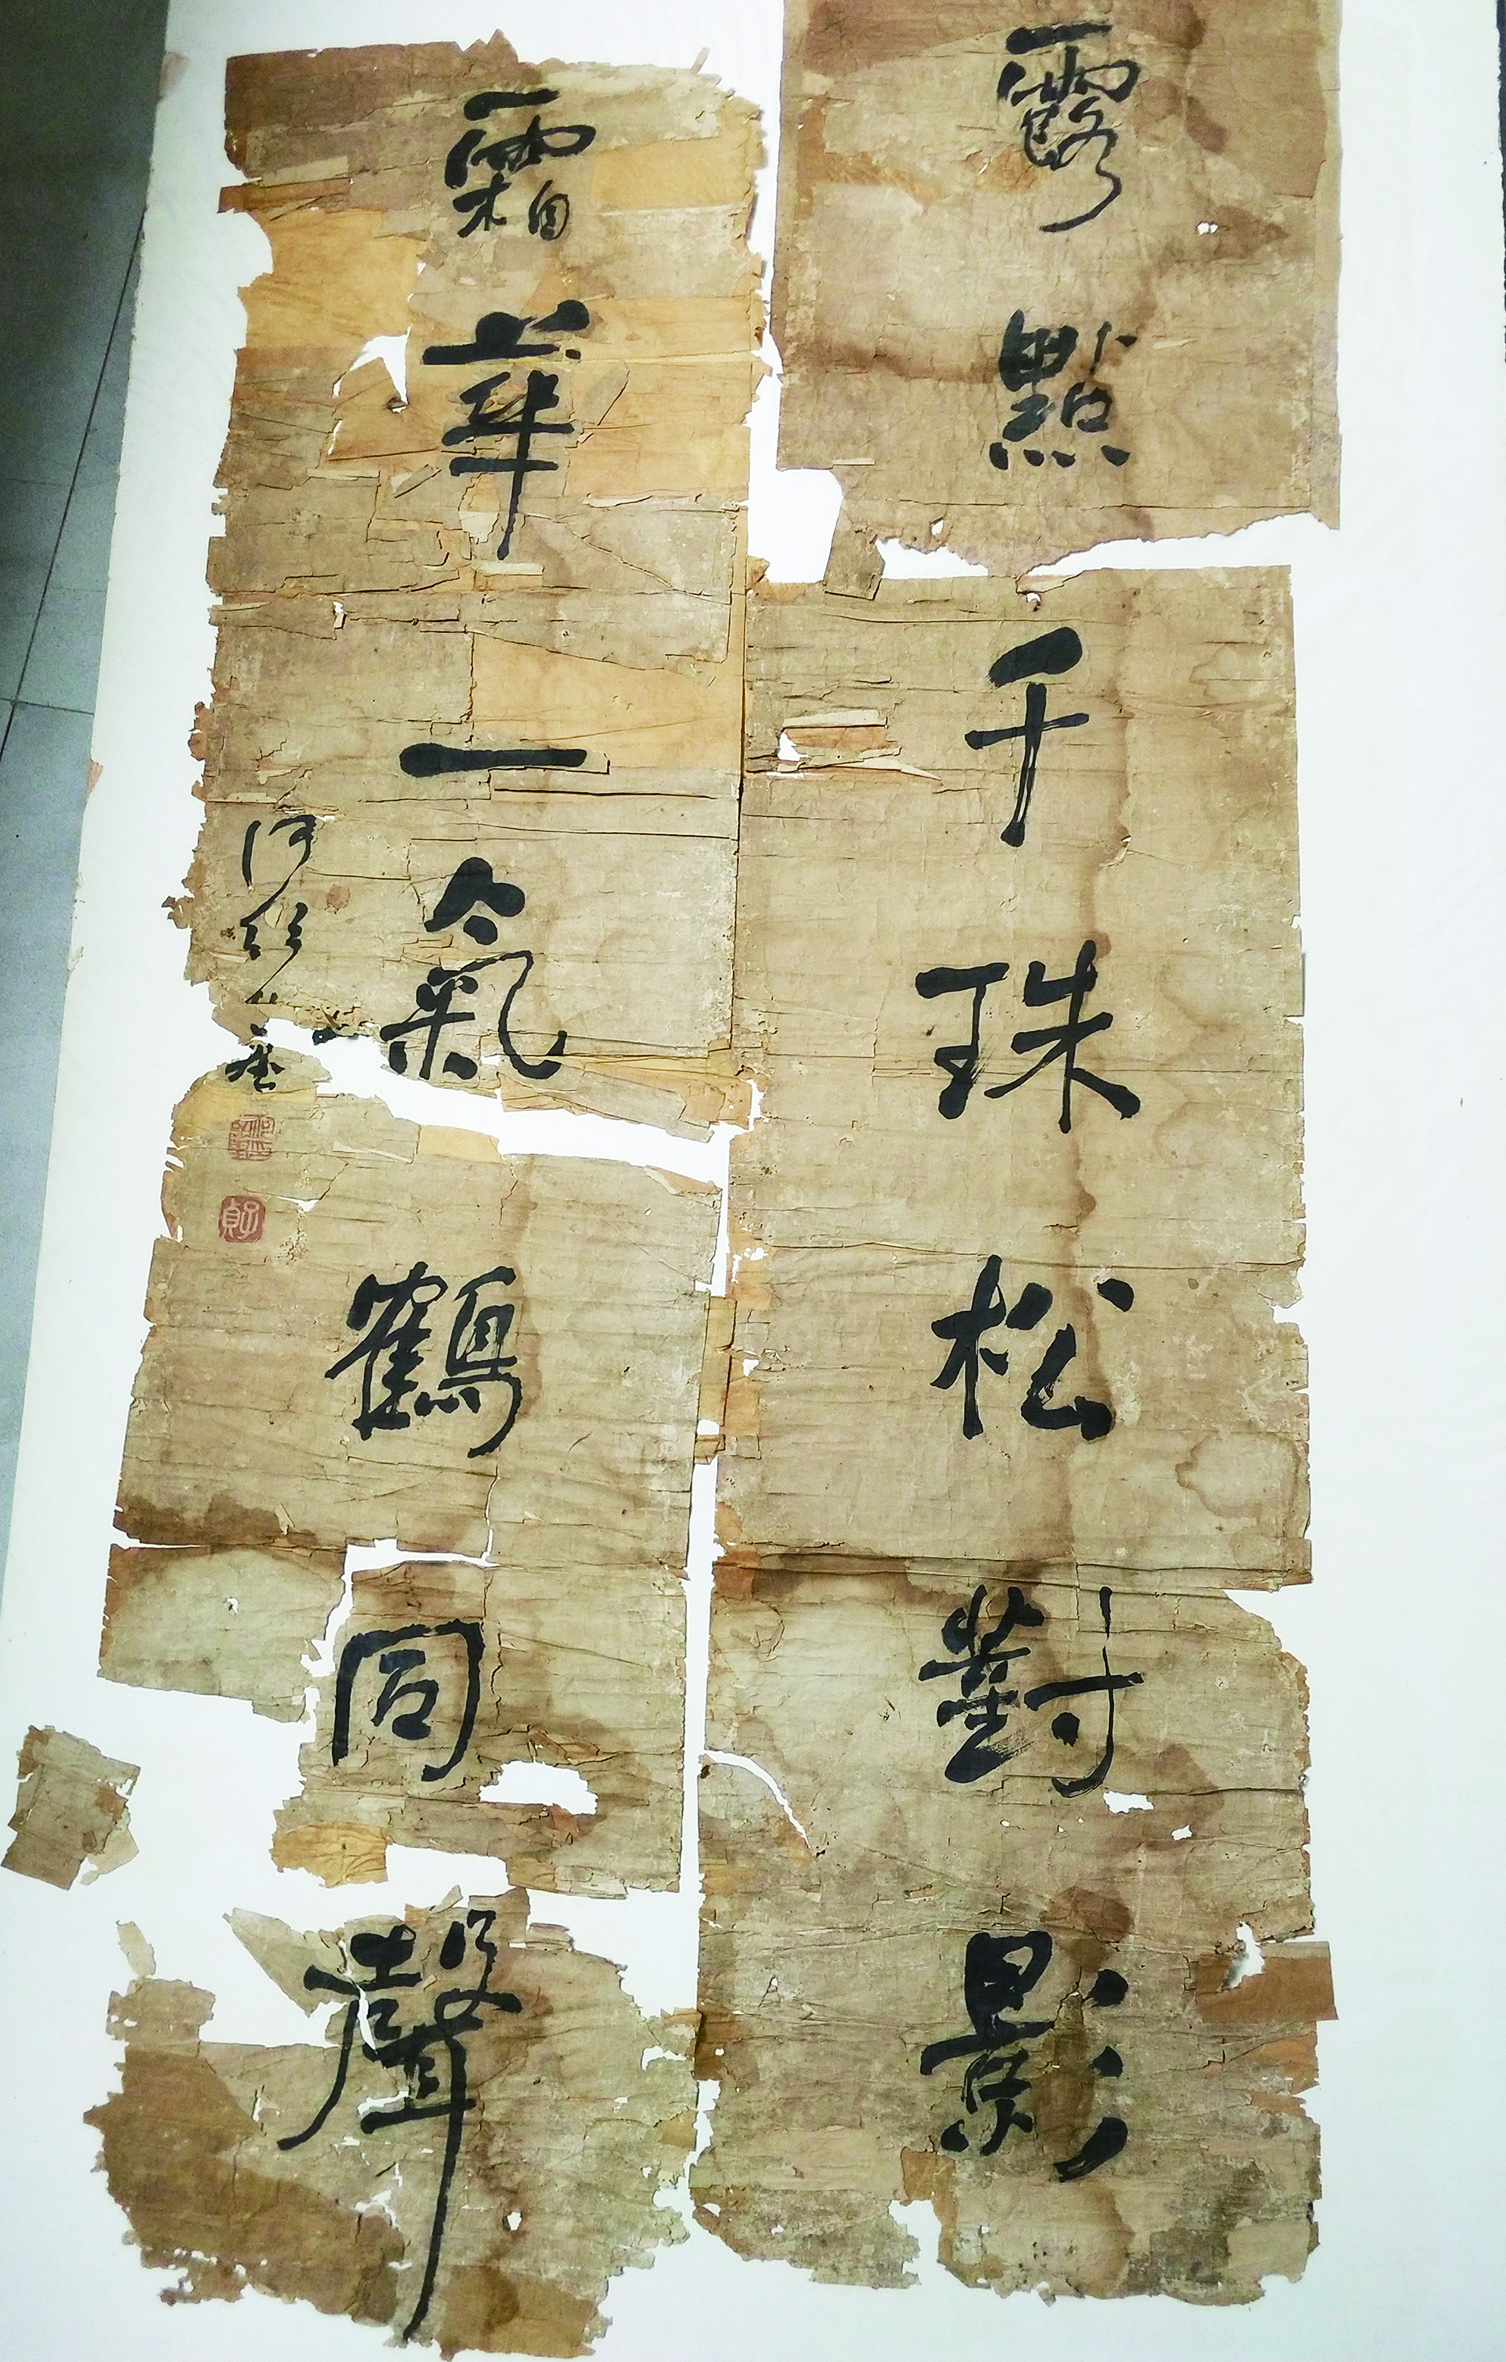 露點千珠松對影
霜華一氣鶴同聲
何紹基
子貞